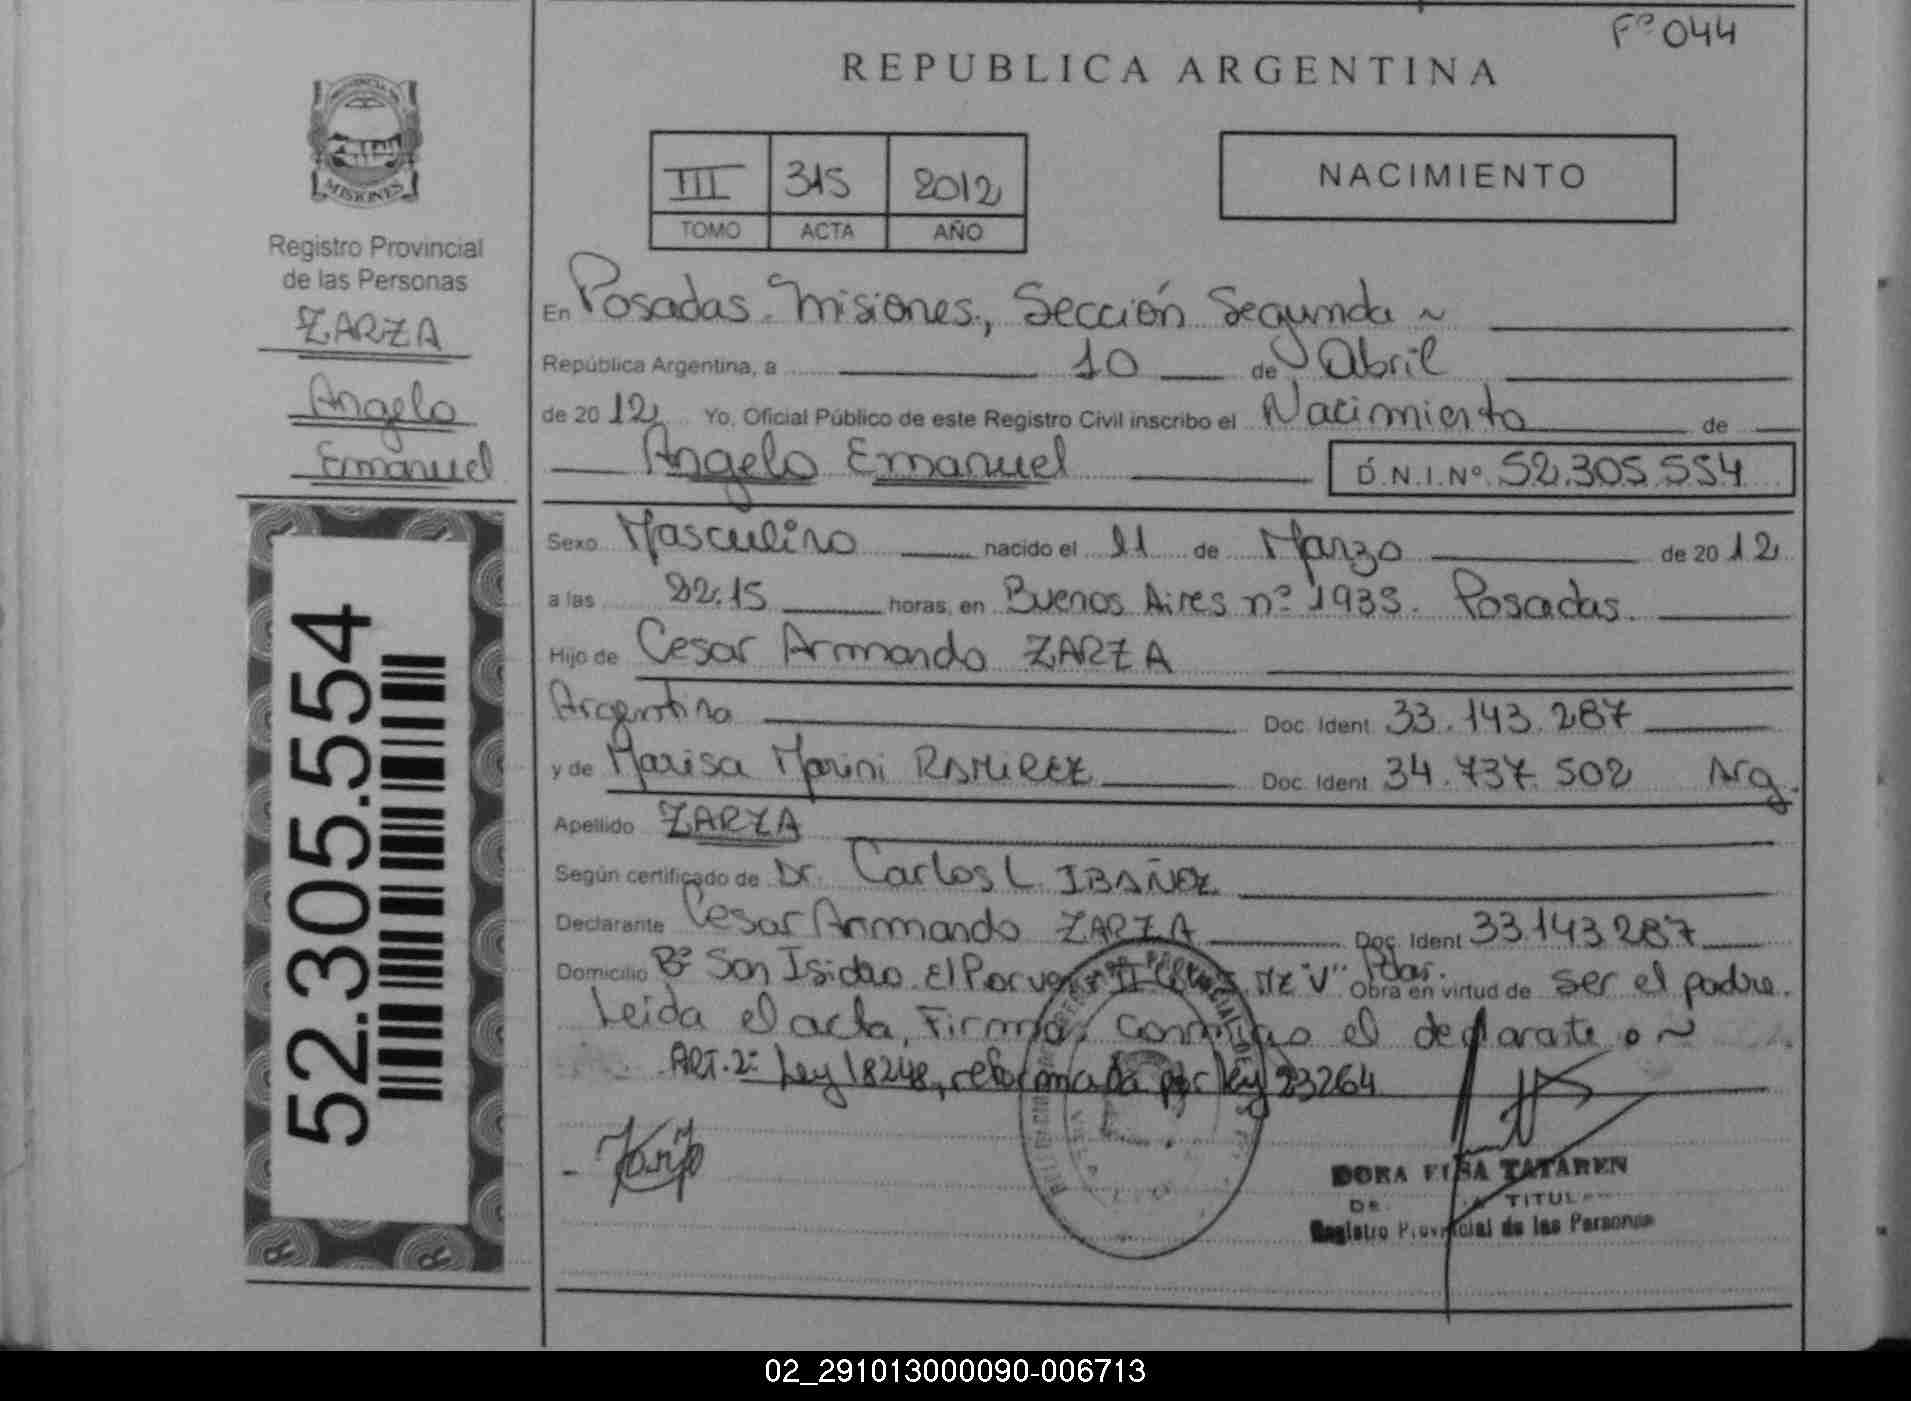 Fº 044
REPUBLICA ARGENTINA
MISIONES
Registro Provincial
de las Personas
ZARZA
Angelo
Emanuel
52.305.554
III 315 2012
TOMO ACTA AÑO
NACIMIENTO
En Posadas. Misiones, Sección Segunda ~
República Argentina, a 10 de Abril
de 2012 Yo, Oficial Público de este Registro Civil inscribo el Nacimiento de
Angelo Emanuel D.N.I. Nº 52.305.554
Sexo Masculino nacido el 11 de Marzo de 2012
a las 22.15 horas, en Buenos Aires nº 1935. Posadas.
Hijo de Cesar Armando ZARZA
Argentina Doc. Ident. 33.143.287
y de Marisa Marini RAMIREZ Doc. Ident. 34.737.502 Arg.
Apellido ZARZA
Según certificado de Dr. Carlos L. IBAÑEZ
Declarante Cesar Armando ZARZA Doc. Ident. 33143287
Domicilio Bº San Isidro. El Porvenir II "V" Pdas. Obra en virtud de ser el padre.
Leida el acta, Firma conmigo el declarate ~
ART. 2º Ley 18248, reformada por ley 23264
DORA ELSA TATAREN
TITULAR
Registro Provincial de las Personas
02_291013000090-006713